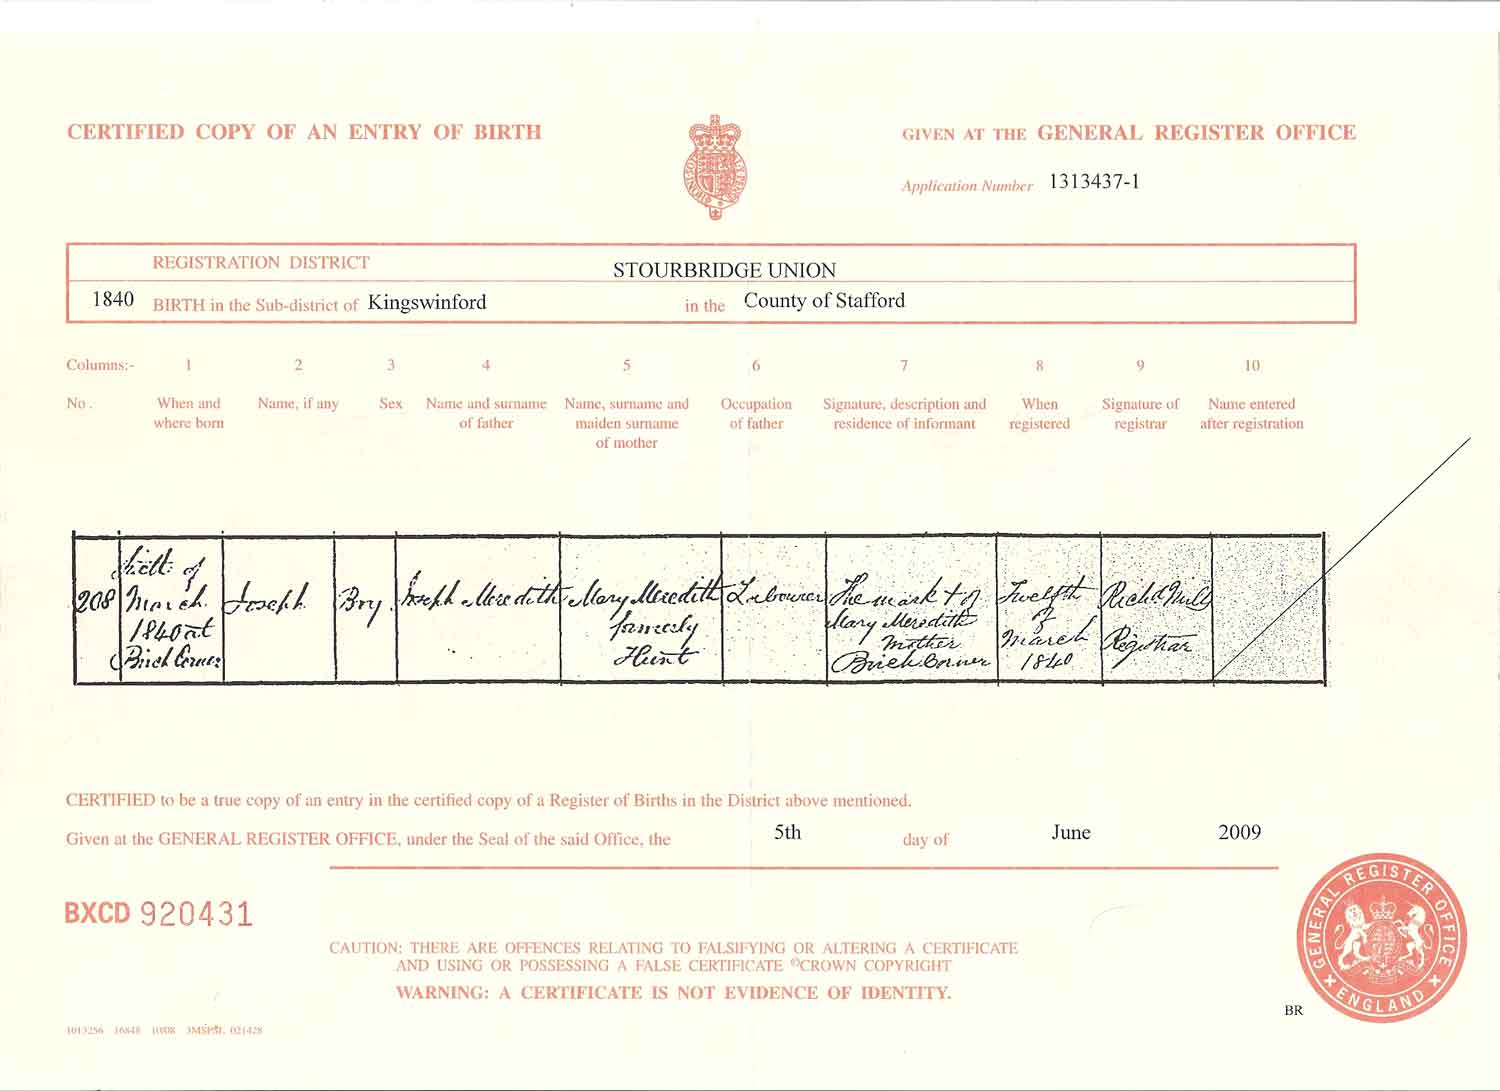 CERTIFIED COPY OF AN ENTRY OF BIRTH
GIVEN AT THE GENERAL REGISTER OFFICE
Application Number 1313437-1
REGISTRATION DISTRICT STOURBRIDGE UNION
1840 BIRTH in the Sub-district of Kingswinford in the County of Stafford
Columns:- 1 2 3 4 5 6 7 8 9 10
No. When and where born
Name, if any
Sex
Name and surname of father
Name, surname and maiden surname of mother
Occupation of father
Signature, description and residence of informant
When registered
Signature of registrar
Name entered after registration
208
of
March
1840 at
Birch Corner
Joseph
Boy
Joseph Meredith
Mary Meredith
formerly
Hunt
Labourer
The mark + of
Mary Meredith
Mother
Birch Corner
Twelfth
of
March
1840
Richd Mills
Registrar
CERTIFIED to be a true copy of an entry in the certified copy of a Register of Births in the District above mentioned.
Given at the GENERAL REGISTER OFFICE, under the Seal of the said Office, the 5th day of June 2009
BXCD 920431
CAUTION: THERE ARE OFFENCES RELATING TO FALSIFYING OR ALTERING A CERTIFICATE
AND USING OR POSSESSING A FALSE CERTIFICATE ©CROWN COPYRIGHT
WARNING: A CERTIFICATE IS NOT EVIDENCE OF IDENTITY.
GENERAL REGISTER OFFICE
ENGLAND
BR